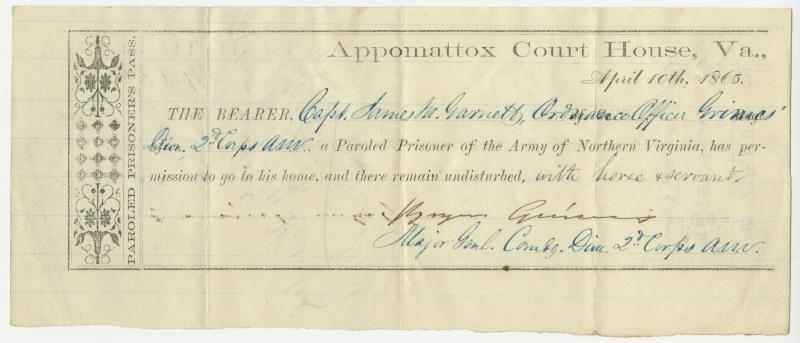 PAROLED PRISONER'S PASS.
Appomattox Court House, Va.,
April 10th, 1865.
THE BEARER, Capt. James M. Garnett, Ordnance Officer Grimes'
Divn. 2d Corps ANV., a Paroled Prisoner of the Army of Northern Virginia, has per-
mission to go to his home, and there remain undisturbed, with horse & servant.
Bryan Grimes
Major Genl. Comdg. Divn. 2d Corps ANV.